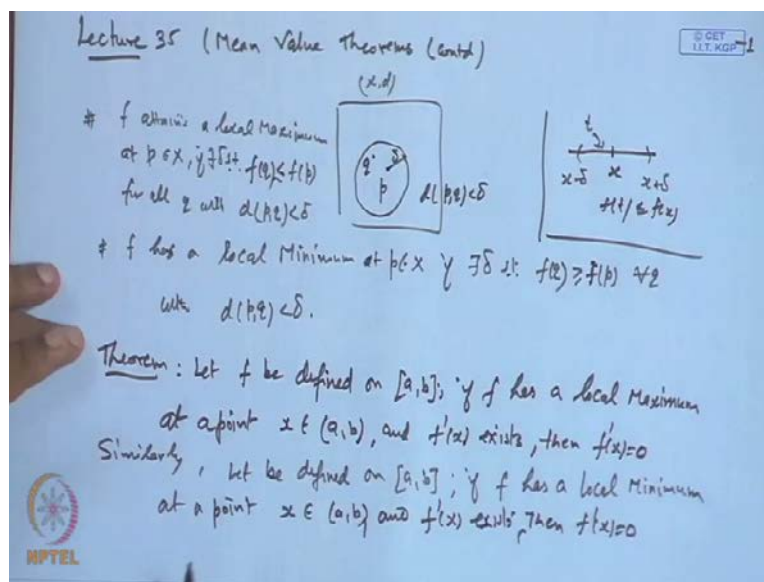 Lecture 35 (Mean Value Theorems (Contd)
© CET
I.I.T. KGP
-1
(x,d)
# f attains a local Maximum
at p ∈ X, if ∃ δ s.t. f(q) ≤ f(p)
for all q with d(p,q) < δ
q
δ
p
d(p,q) < δ
t
x-δ x x+δ
f(t) ≤ f(x)
# f has a local Minimum at p ∈ X if ∃ δ s.t. f(q) ≥ f(p) ∀ q
with d(p,q) < δ.
Theorem: Let f be defined on [a,b]; if f has a local Maximum
at a point x ∈ (a,b), and f'(x) exists, then f'(x)=0
Similarly, Let be defined on [a,b]; if f has a local Minimum
at a point x ∈ (a,b) and f'(x) exists, Then f'(x)=0
NPTEL